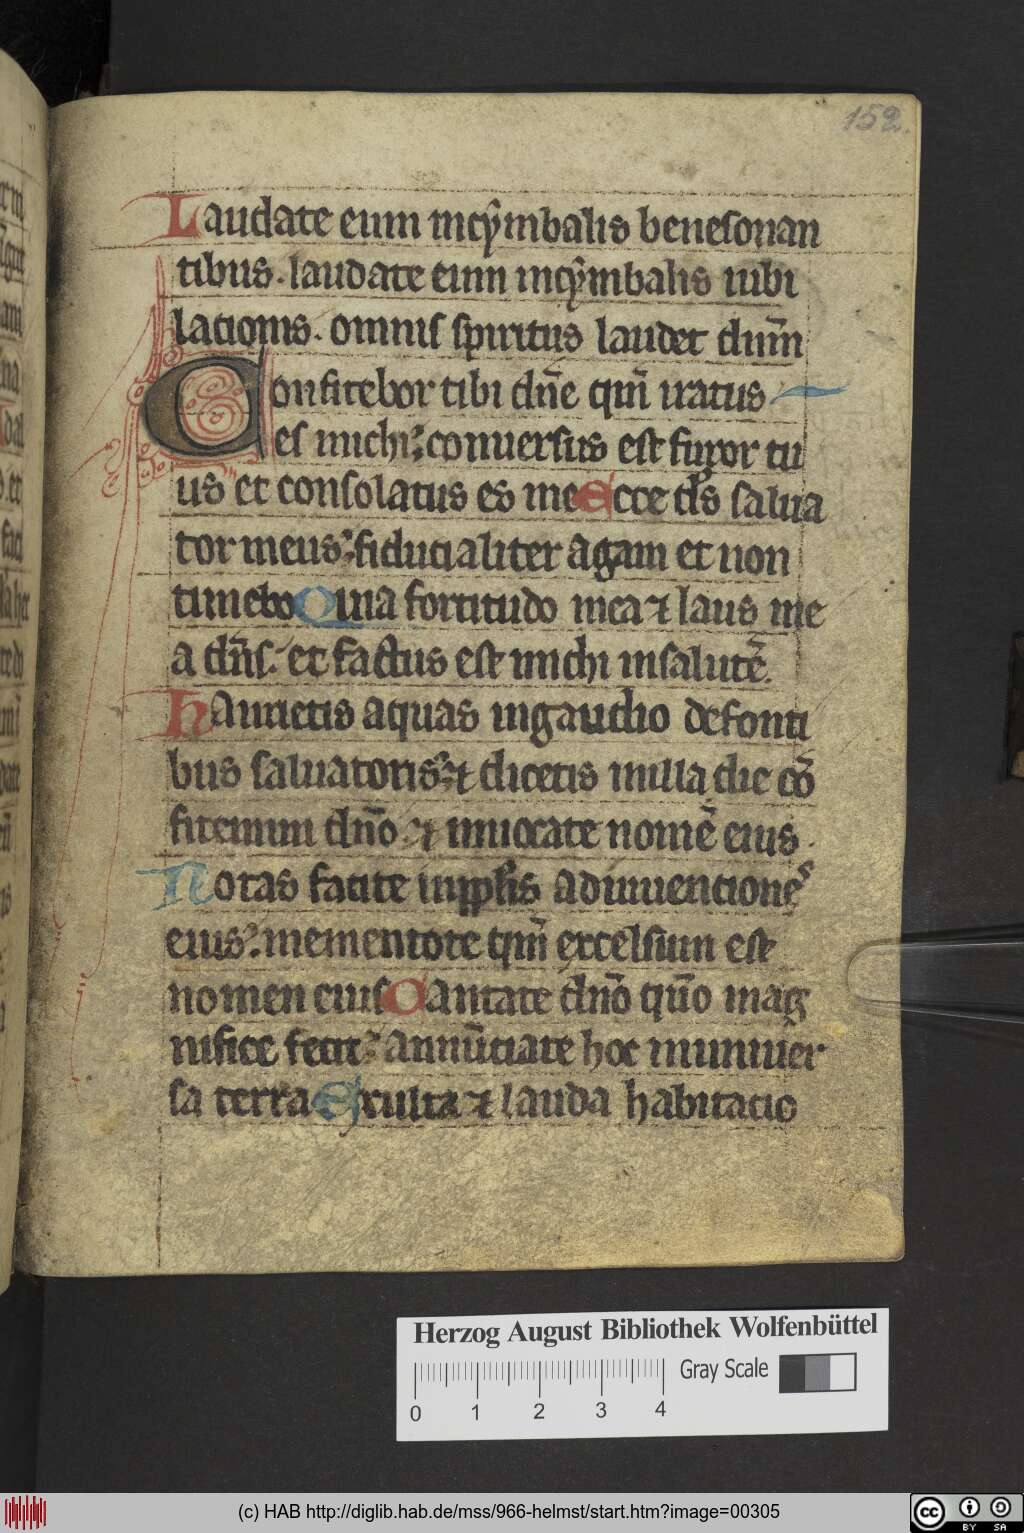 152.
Laudate eum in cymbalis benesonan
tibus. laudate eum in cymbalis iubi
lacionis. omnis spiritus laudet dnm̄
Confitebor tibi dn̄e qm̄ iratus
es michi: conuersus est furor tu
us et consolatus es me Ecce ds̄ salua
tor meus: fiducialiter agam et non
timebo Quia fortitudo mea ⁊ laus me
a dn̄s. et factus est michi in salutē.
Haurietis aquas in gaudio de fonti
bus saluatoris: ⁊ dicetis in illa die cō
fitemini dn̄o. ⁊ inuocate nomē eius.
Notas facite in pplīs adinuenciones
eius: mementote qm̄ excelsum est
nomen eius Cantate dn̄o qm̄o mag
nifice fecit: annūciate hoc in uniuer
sa terra Exulta ⁊ lauda habitatio
Herzog August Bibliothek Wolfenbüttel
Gray Scale
0 1 2 3 4
(c) HAB http://diglib.hab.de/mss/966-helmst/start.htm?image=00305
CC BY SA